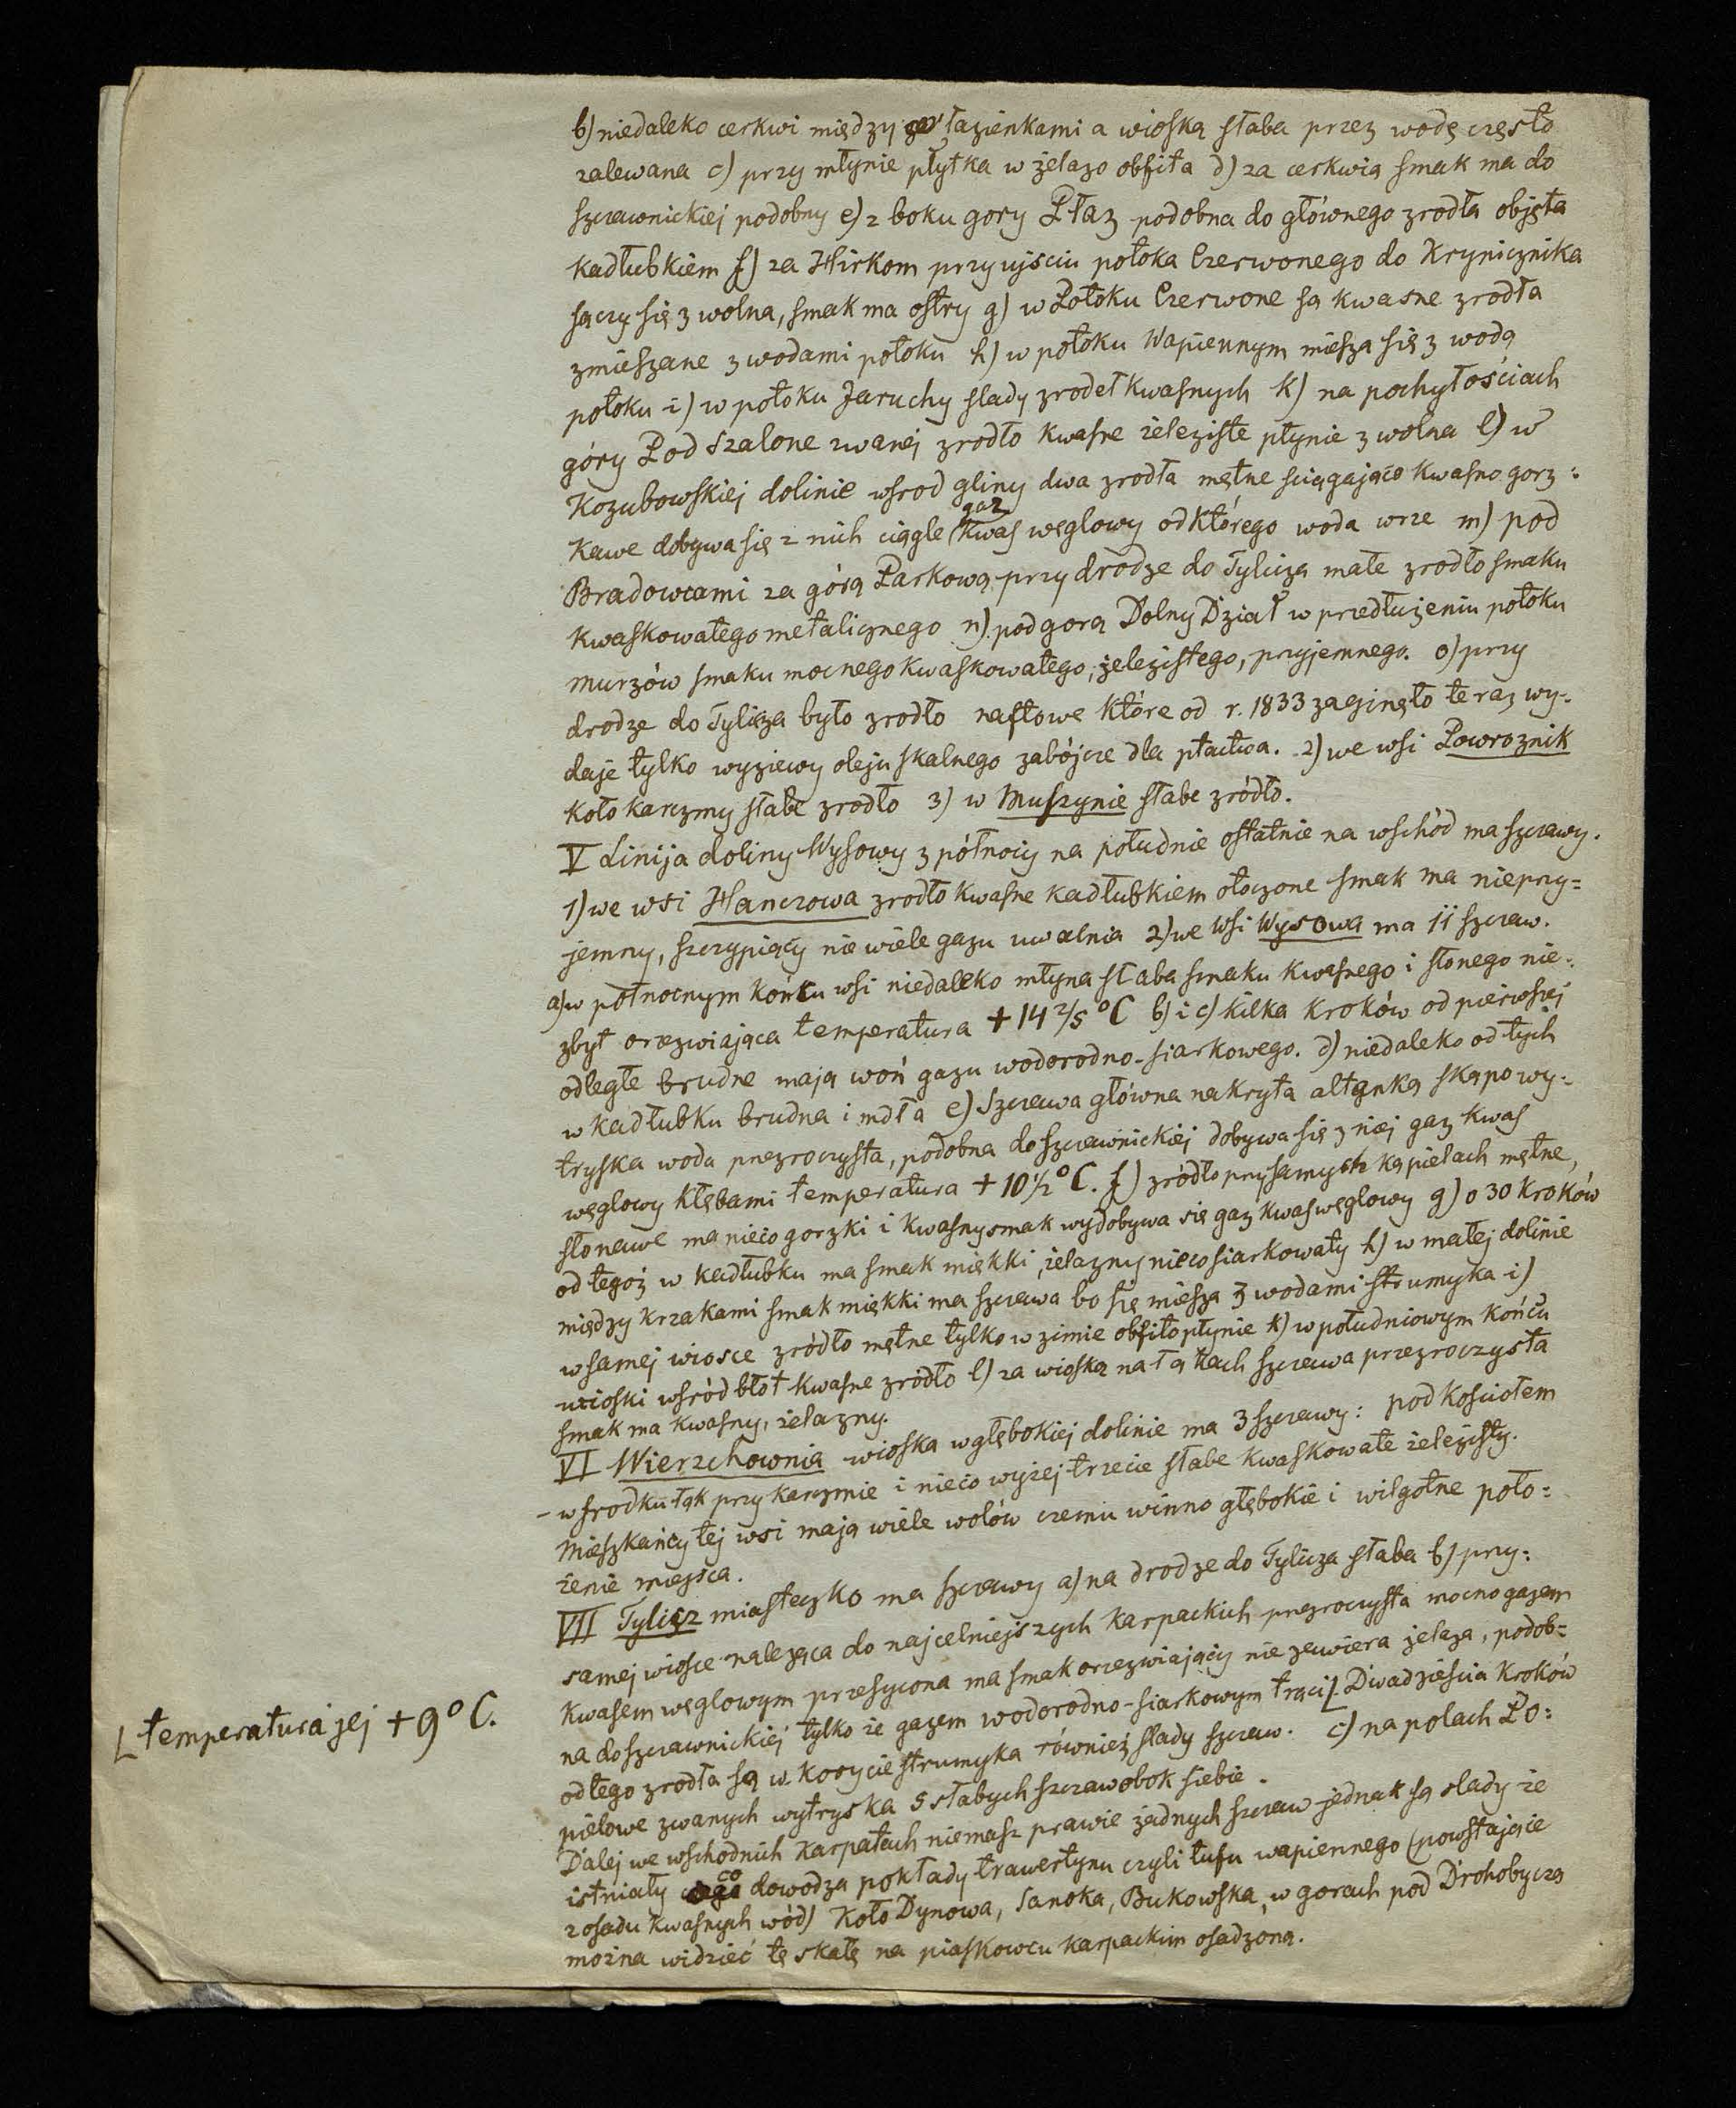 b) niedaleko cerkwi między łazienkami a wioską słaba przez wodę często
zalewana c) przy młynie płytka w żelazo obfita d) za cerkwią smak ma do
szczawnickiej podobny e) z boku gory Płaz podobna do głównego zrodła objęta
kadłubkiem f) za Hirkom przy ujściu potoka Czerwonego do Krynicznika
sączy się z wolna, smak ma ostry g) w Potoku Czerwone są kwasne zrodła
zmieszane z wodami potoku h) w potoku Wapiennym miesza się z wodą
potoku i) w potoku Jaruchy slady zrodeł kwasnych k) na pochyłościach
góry Pod Szalone zwanej zrodło kwasne żeleziste płynie z wolna l) w
Kozubowskiej dolinie wsrod gliny dwa zrodła mętne sciągająco kwasno gorz=
kawe dobywa się z nich ciągle gaz kwas węglowy od którego woda wrze m) pod
Bradowcami za górą Parkową przy drodze do Tylicza małe zrodło smaku
kwaskowatego metalicznego n) pod gorą Dolny Dział w przedłużeniu potoku
murzów smaku mocnego kwaskowatego, żelezistego, przyjemnego. o) przy
drodze do Tylicza było zrodło naftowe które od r. 1833 zaginęło teraz wy-
daje tylko wyziewy oleju skalnego zabójcze dla ptactwa. 2) we wsi Powroznik
koło karczmy słabe zrodło 3) w Muszynie słabe zródło.
V Linija doliny Wysowy z północy na południe ostatnie na wschód ma szczawy.
1) we wsi Hanczowa zrodło kwasne kadłubkiem otoczone smak ma nieprzy=
jemny, szczypiący nie wiele gazu uwalnia 2) we wsi Wysowa ma 11 szczaw.
a) w połnocnym końcu wsi niedaleko młyna słaba smaku kwasnego i słonego nie=
zbyt orzezwiająca temperatura + 14 2/5 °C b) i c) kilka kroków od pierwszej
odległe brudne mają woń gazu wodorodno-siarkowego. d) niedaleko od tych
w kadłubku brudna i mdła e) Szczawa główna nakryta altanką skąpo wy=
tryska woda przezroczysta, podobna do szczawnickiej dobywa się z niej gaz kwas
węglowy kłębami temperatura + 10 1/2 °C. f) zródło przy samych kąpielach mętne,
słonawe ma nieco gorzki i kwasny smak wydobywa się gaz kwas węglowy g) o 30 kroków
od tegoż w kadłubku ma smak miękki, żelazny nieco siarkowaty h) w małej dolinie
między krzakami smak miękki ma szczawa bo się miesza z wodami strumyka i)
w samej wiosce zródło mętne tylko w zimie obfito płynie k) w południowym końcu
wioski wsród błot kwasne zródło l) za wioską na łąkach szczawa przezroczysta
smak ma kwasny, żelazny.
VI Wierzchownia wioska w głębokiej dolinie ma 3 szczawy: pod kosciołem
– w srodku łąk przy karczmie i nieco wyżej trzecie słabe kwaskowate żelezisty.
Mieszkańcy tej wsi mają wiele wolów czemu winno głębokie i wilgotne poło=
żenie miejsca.
VII Tylicz miasteczko ma szczawy a) na drodze do Tylicza słaba b) przy=
samej wiosce należąca do najcelniejszych karpackich przezroczysta mocno gazem
kwasem węglowym przesycona ma smak orzezwiający nie zawiera żelaza, podob=
na do szczawnickiej tylko że gazem wodorodno-siarkowym trąci [. Dwadzieścia kroków
[ temperatura jej + 9° C.
od tego zrodła są w korycie strumyka również slady szczaw. c) na polach Po=
pielowe zwanych wytryska 5 słabych szczaw obok siebie.
Dalej we wschodnich Karpatach niemasz prawie żadnych szczaw jednak są slady że
istniały co dowodzą pokłady trawertynu czyli tufu wapiennego (powstające
z osadu kwasnych wód) Koło Dynowa, Sanoka, Bukowska, w gorach pod Drohobyczą
można widzieć tę skałę na piaskowcu karpackim osadzoną.